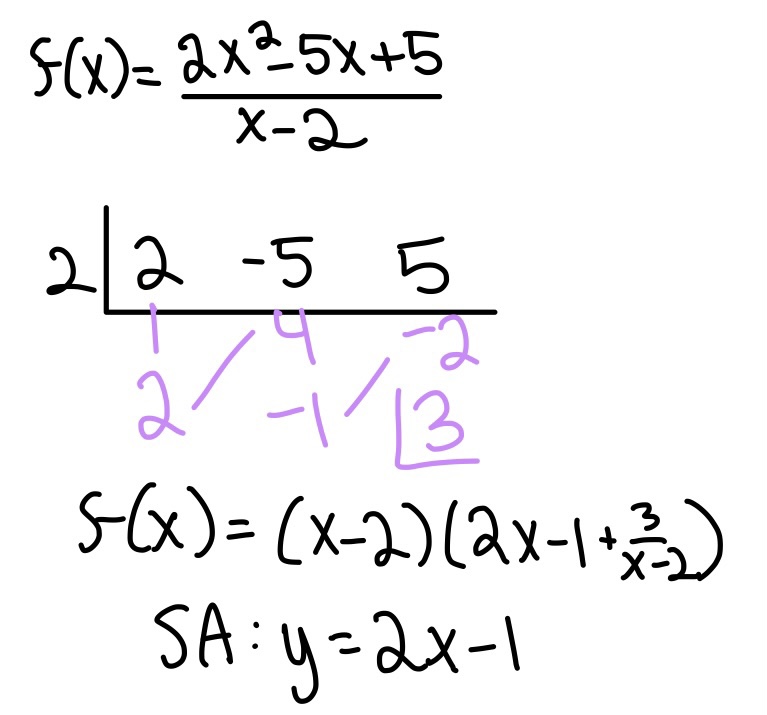 f(x) = (2x² - 5x + 5)/(x - 2)
2 | 2 -5 5
4 -2
2 -1 3
f(x) = (x-2)(2x-1+3/(x-2))
SA: y = 2x-1